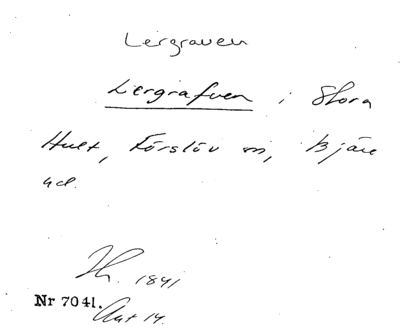 Lergraven
Lergrafven i Stora
Hult, Förslöv sn, Bjäre
hd.
1841
Nr 7041.
Akt 14.